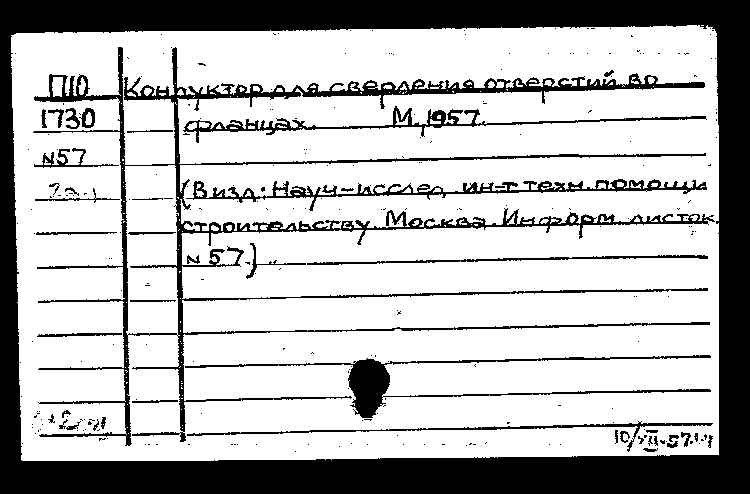 П10 Кондуктор для сверления отверстий во
1730 фланцах. М., 1957.
N57
(В изд.: Науч-исслед. ин-т техн. помощи
строительству. Москва. Информ. листок.
N 57.)
10/VII-57